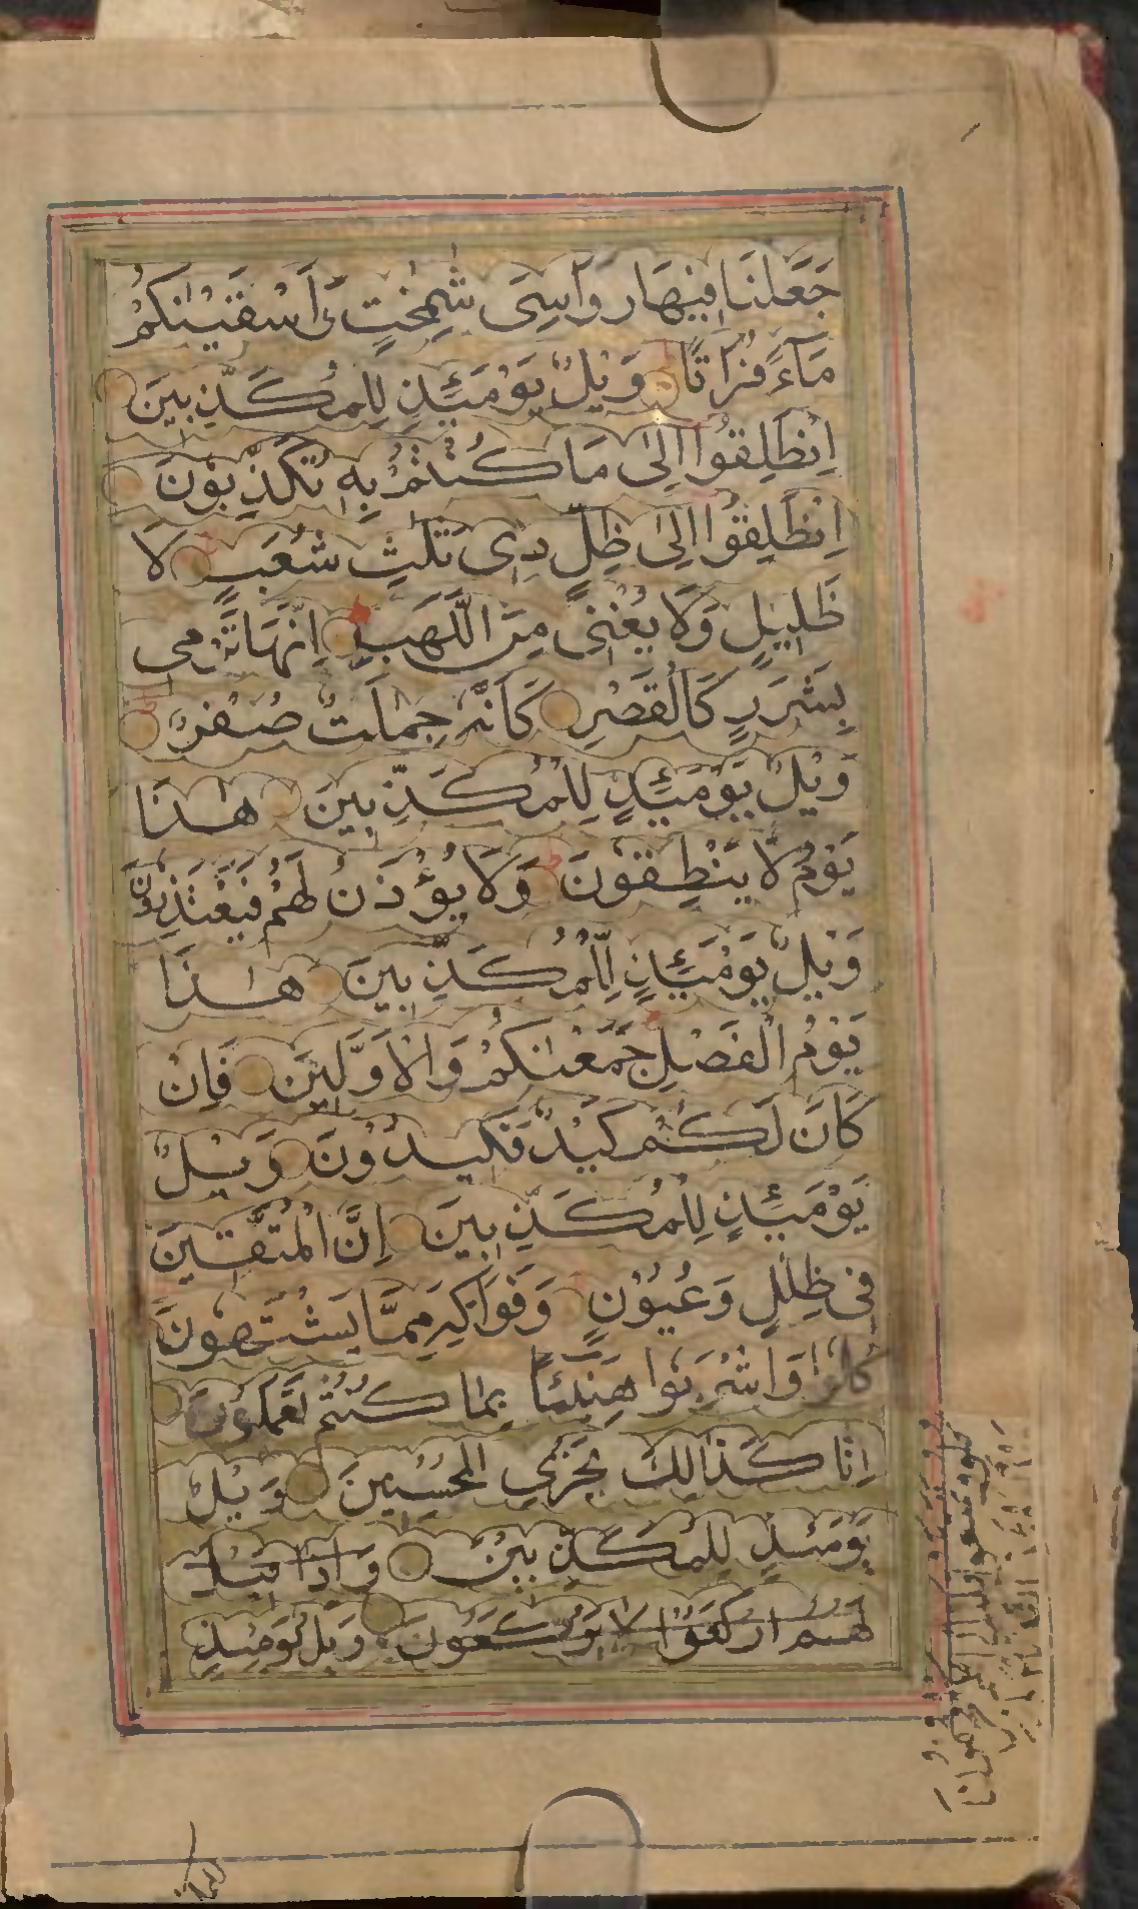 جَعَلْنَا فِيهَا رَوَاسِىَ شٰمِخٰتٍ وَّاَسْقَيْنٰكُمْ
مَآءً فُرَاتًا وَيْلٌ يَوْمَئِذٍ لِلْمُكَذِّبِينَ
اِنْطَلِقُوا اِلىٰ مَا كُنْتُمْ بِهٖ تُكَذِّبُونَ
اِنْطَلِقُوا اِلىٰ ظِلٍّ ذِى ثَلٰثِ شُعَبٍ لَا
ظَلِيلٍ وَلَا يُغْنِى مِنَ اللَّهَبِ اِنَّهَا تَرْمِى
بِشَرَرٍ كَالْقَصْرِ كَاَنَّهٗ جِمٰلَتٌ صُفْرٌ
وَيْلٌ يَوْمَئِذٍ لِلْمُكَذِّبِينَ هٰذَا
يَوْمُ لَا يَنْطِقُونَ وَلَا يُؤْذَنُ لَهُمْ فَيَعْتَذِرُونَ
وَيْلٌ يَوْمَئِذٍ لِّلْمُكَذِّبِينَ هٰذَا
يَوْمُ الْفَصْلِ جَمَعْنٰكُمْ وَالْاَوَّلِينَ فَاِنْ
كَانَ لَكُمْ كَيْدٌ فَكِيدُونَ وَيْلٌ
يَوْمَئِذٍ لِلْمُكَذِّبِينَ اِنَّ الْمُتَّقِينَ
فِى ظِلٰلٍ وَعُيُوْنٍ وَفَوَاكِهَ مِمَّا يَشْتَهُونَ
كُلُوا وَاشْرَبُوا هَنِيْئًا بِمَا كُنْتُمْ تَعْمَلُونَ
اِنَّا كَذٰالِكَ نَجْزِي الْمُحْسِنِينَ وَيْلٌ
يَوْمَئِذٍ لِلْمُكَذِّبِينَ وَاِذَا قِيْلَ
لَهُمُ ارْكَعُوْا لَا يَرْكَعُونَ وَيْلٌ يَوْمَئِذٍ